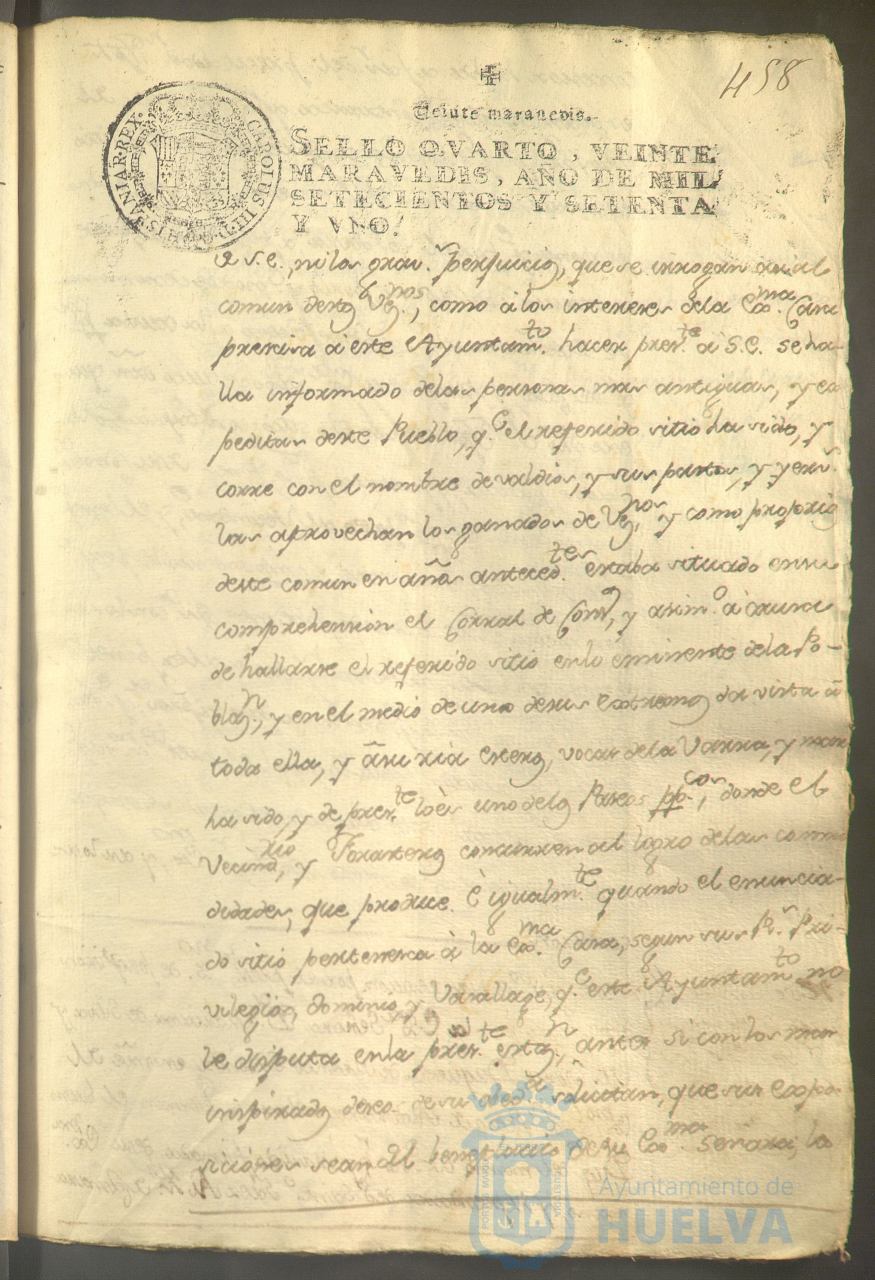 458
Veinte maravedis.
SELLO QVARTO, VEINTE
MARAVEDIS, AÑO DE MIL
SETECIENTOS Y SETENTA
Y VNO.
CAROLUS III D.G. HISPANIAR. REX.
a S.E., ni los grav.s perjuicios, que se irrogan asi al
comun destos Vez.nos, como à los intereses dela Exma. Casa
precisa à este Ayuntam.to hacer pres.te à S.E. se ha-
lla informado delas personas mas antiguas, y ex
peditas deste Pueblo, q.e el referido sitio ha sido, y
corre con el nombre de valdios, y sus pastos, y yerv.s
las aprovechan los ganados de Vez.nos, y como proprio
deste comun en años anteced.tes estaba situado en su
comprehension el Corral de Conso, y asim.o à causa
de hallarse el referido sitio en lo eminente dela Po-
blaz.n, y en el medio de uno desus Extremos da vista à
toda ella, y à su ria esteros, vocas dela Varra, y mar
ha sido, y de pres.te lo es uno delos Paseos pp.cos, donde el
Vecind.rio y Forasteros concurren al logro delas como
didades, que produce. E igualm.te quando el enuncia-
do sitio pertenesca à la Exma. Casa, segun sus R.s Pri-
vilegios, dominio, y Vasallaje, q.e este Ayuntam.to no
le disputa en la pres.te estaz.n, antes si con los mas
inspirados deseos de su obed.a solicitan, que sus expo
siciones sean del beneplacito de su Exma.
Ayuntamiento de
HUELVA